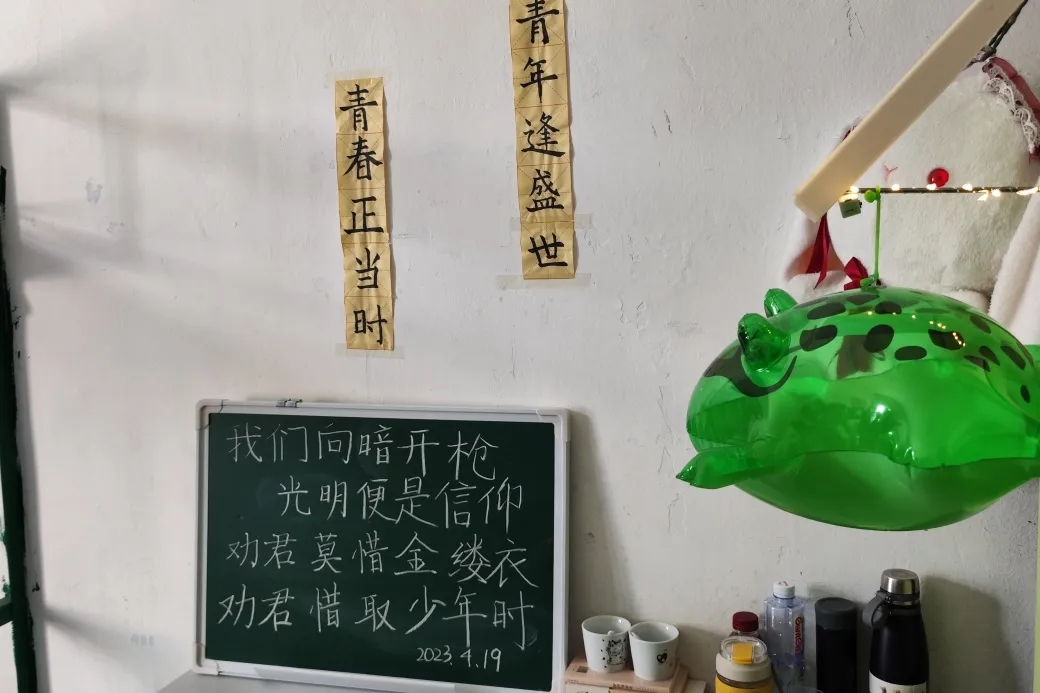 青春正当时
青年逢盛世
我们向暗开枪
光明便是信仰
劝君莫惜金缕衣
劝君惜取少年时
2023.4.19